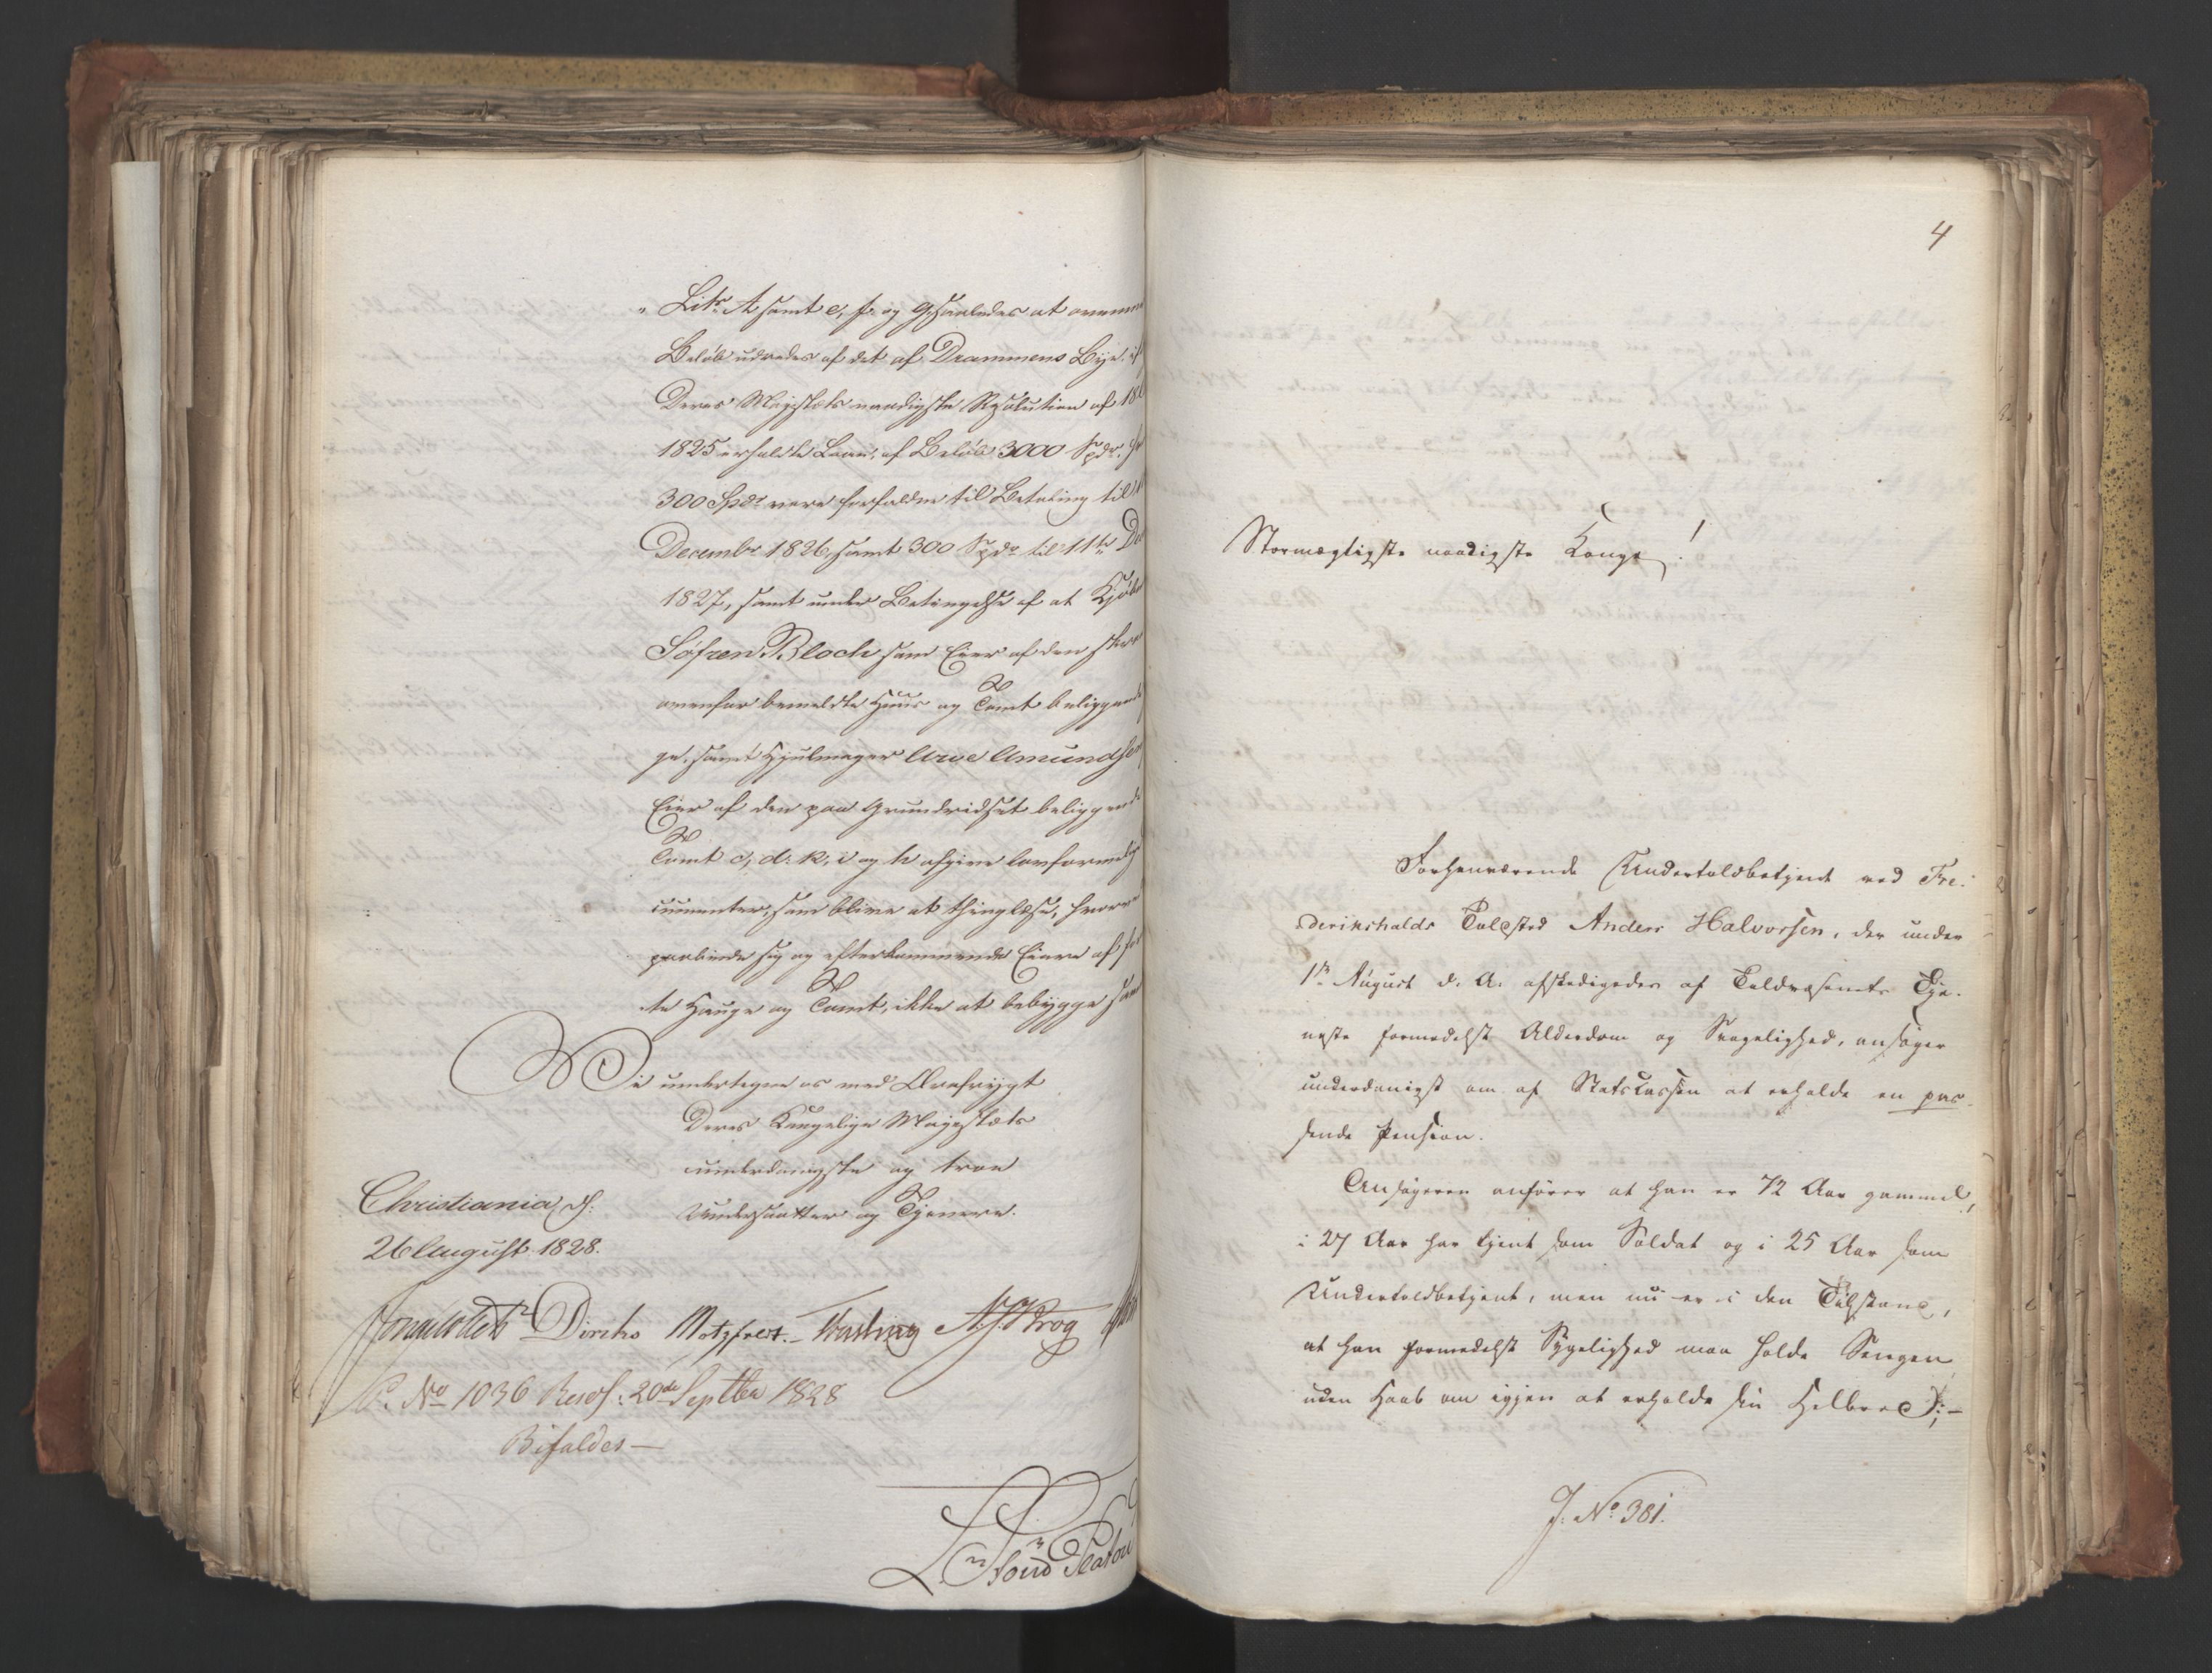 " Litr. A samt e, f. og g, saaledes at
Beløb udredes af det af Drammens Bye
Deres Majestæts naadigste Resolution af 18
1825 erholdte Laan, af Beløb 3000 Spdr.
300 Spdr. være forfalden til Betaling til
Decembr 1826, samt 300 Spdr. til 11te De
1827, samt under Betingelse af at Kjøb
Søfren Bloch som Eier af den
ovenfor bemeldte Huus og Tomt beliggende
ge, samt Hjulmager Arve Amundsen
Eier af den paa Grundridset beliggende
Tomt c, d. k, i og h afgive lovformelig
cumenter, som blive at thinglæse, hvorved
paabinde sig og efterkommende Eiere af
te Hauge og Tomt, ikke at bebygge
Vi undertegne os med Ærefrygt
Deres Kongelige Majestæts
underdanigste og troe
Undersaatter og Tjenere.
Christiania, d:
26 August 1828.
Diriks Motzfeldt. Krog
No 1036 Resol: 20de Septbr 1828
Bifaldes —
4
Stormægtigste naadigste Konge!
Forhenværende Undertoldbetjent ved Fre-
derikshalds Toldsted Anders Halvorsen, der under
1ste August d. A. afskedigedes af Toldvæsenets Tje-
neste formedelst Alderdom og Svagelighed, ansøger
underdanigst om af Statskassen at erholde en pas-
sende Pension.
Ansøgeren anfører at han er 72 Aar gammel,
i 27 Aar har tjent som Soldat og i 25 Aar som
Undertoldbetjent, men nu er i den Tilstand,
at han formedelst Sygelighed maa holde Sengen
uden Haab om igjen at erholde sin Helbred; —
J. No. 381.